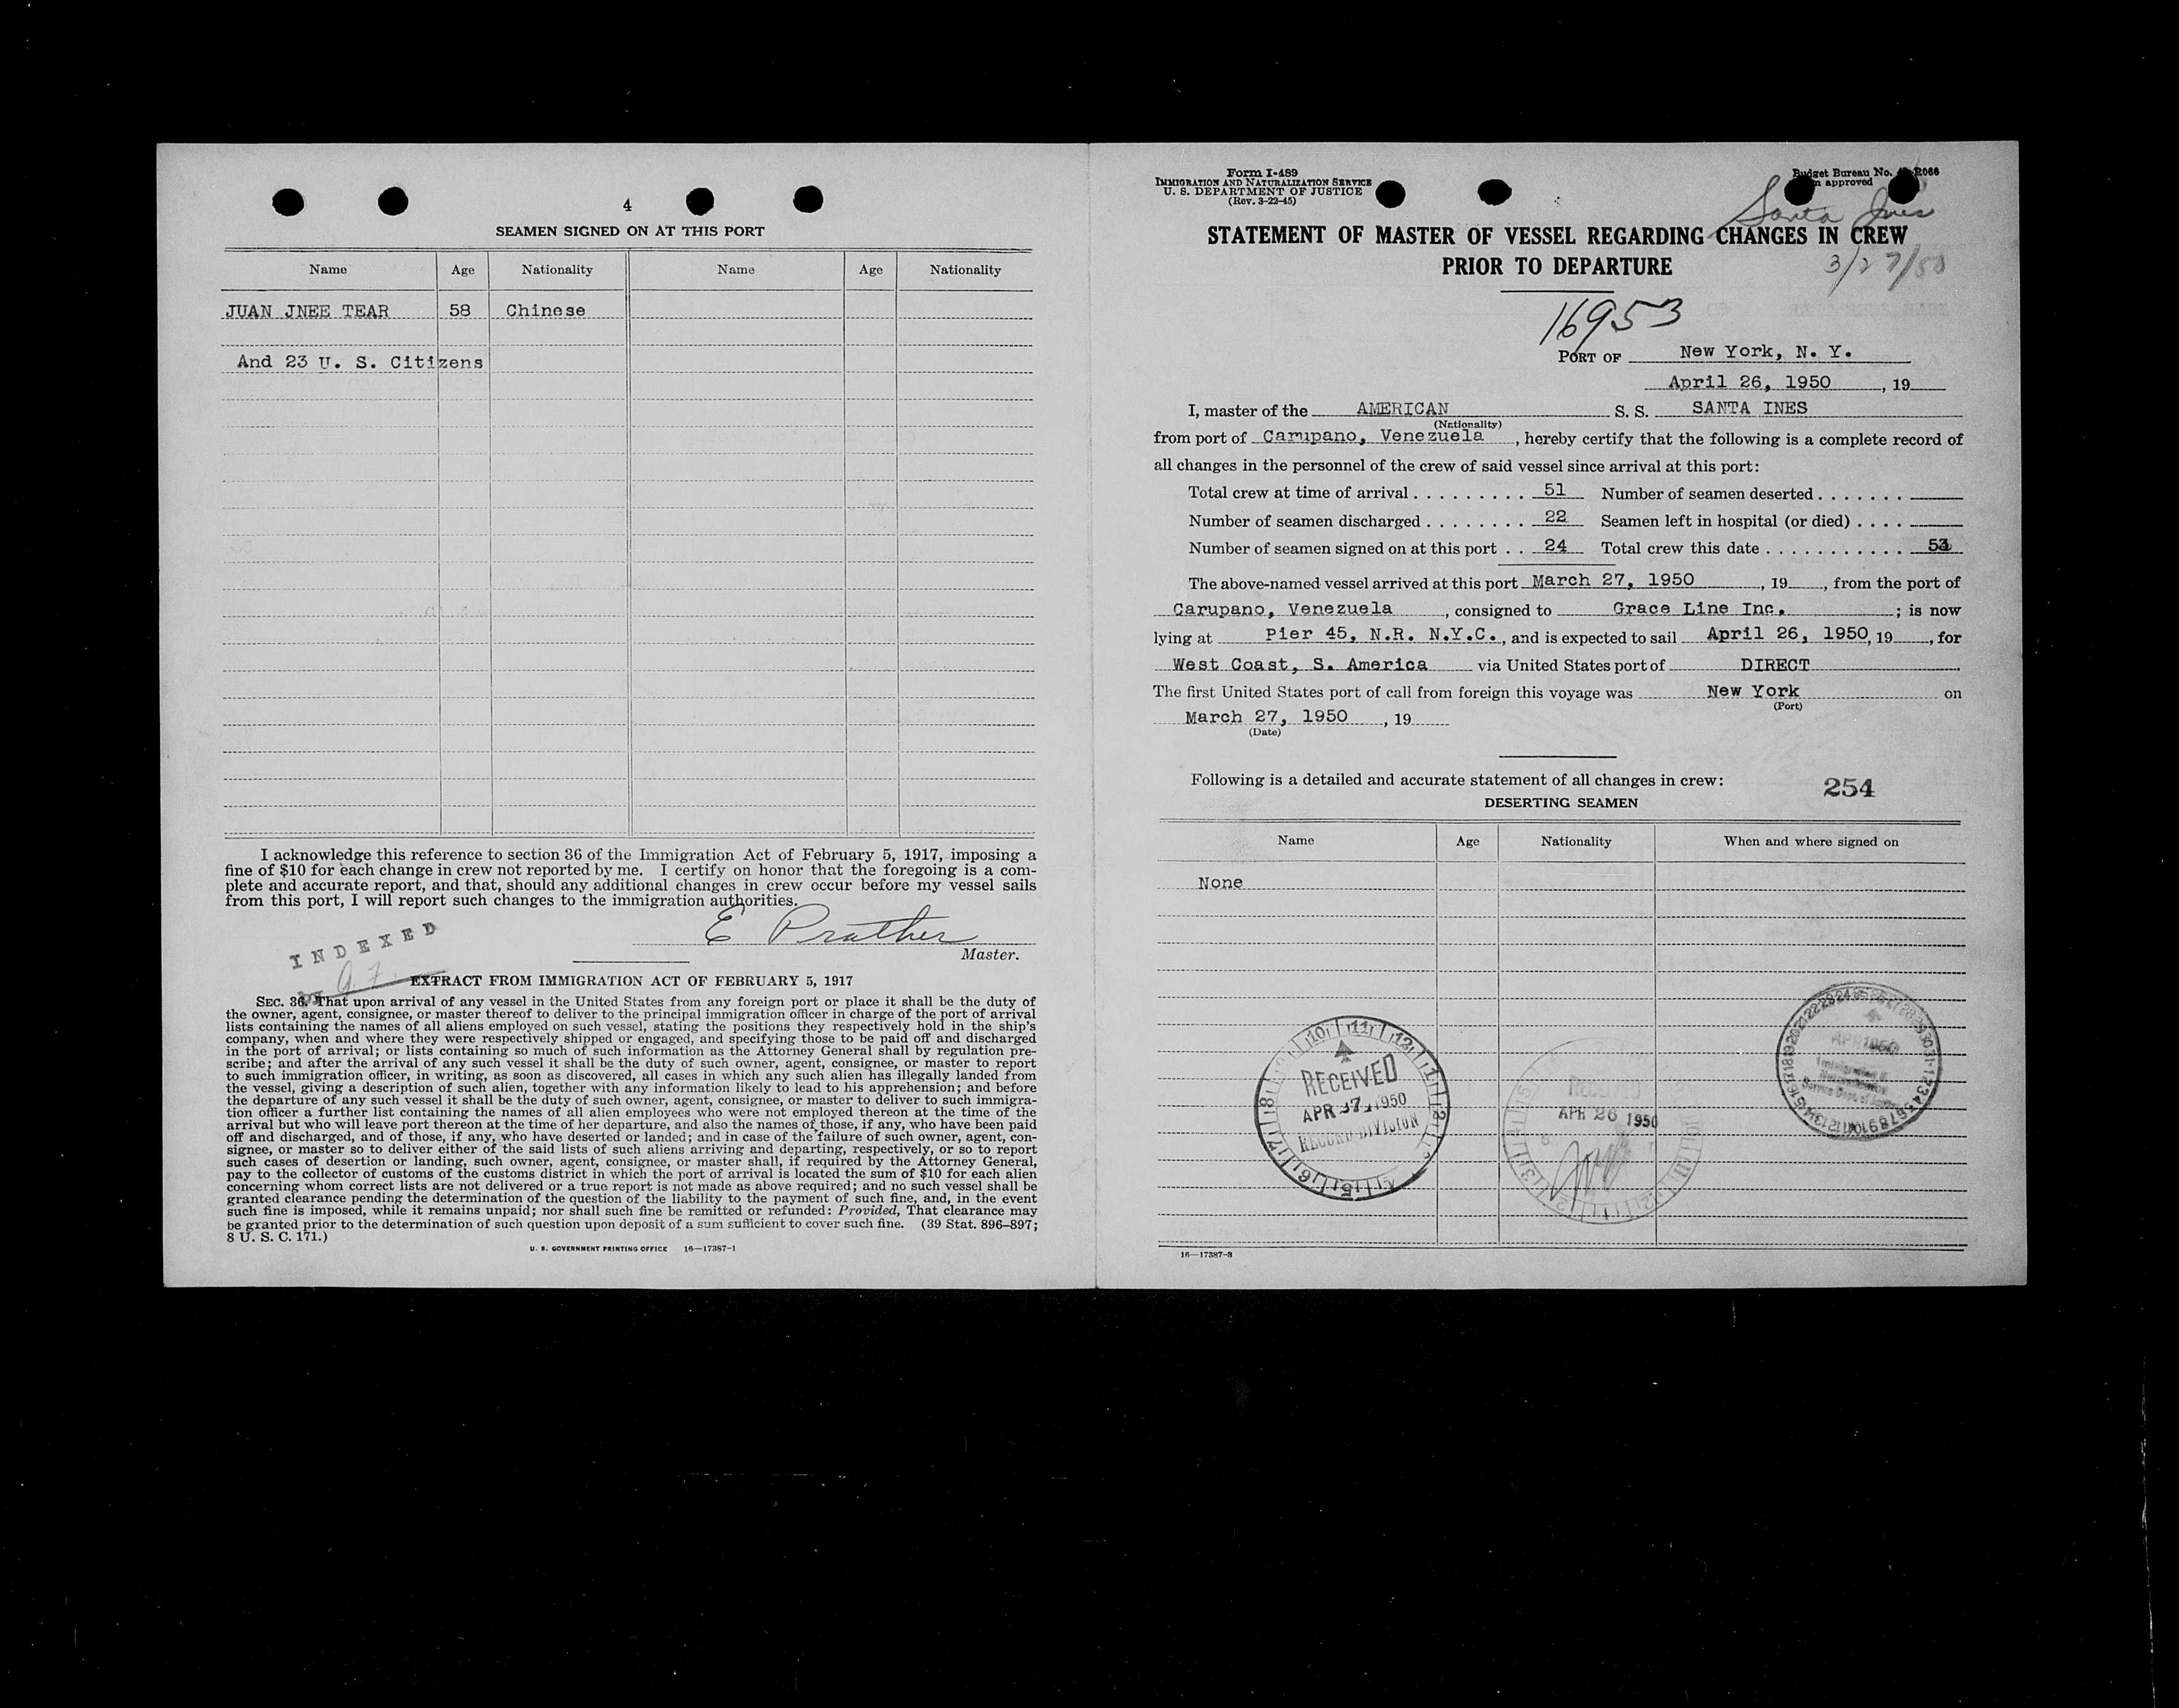 4
SEAMEN SIGNED ON AT THIS PORT
Name Age Nationality Name Age Nationality
JUAN JNEE TEAR 58 Chinese
And 23 U. S. Citizens
I acknowledge this reference to section 36 of the Immigration Act of February 5, 1917, imposing a
fine of $10 for each change in crew not reported by me. I certify on honor that the foregoing is a com-
plete and accurate report, and that, should any additional changes in crew occur before my vessel sails
from this port, I will report such changes to the immigration authorities.
E Prather
Master.
INDEXED
EXTRACT FROM IMMIGRATION ACT OF FEBRUARY 5, 1917
SEC. 36. That upon arrival of any vessel in the United States from any foreign port or place it shall be the duty of
the owner, agent, consignee, or master thereof to deliver to the principal immigration officer in charge of the port of arrival
lists containing the names of all aliens employed on such vessel, stating the positions they respectively hold in the ship's
company, when and where they were respectively shipped or engaged, and specifying those to be paid off and discharged
in the port of arrival; or lists containing so much of such information as the Attorney General shall by regulation pre-
scribe; and after the arrival of any such vessel it shall be the duty of such owner, agent, consignee, or master to report
to such immigration officer, in writing, as soon as discovered, all cases in which any such alien has illegally landed from
the vessel, giving a description of such alien, together with any information likely to lead to his apprehension; and before
the departure of any such vessel it shall be the duty of such owner, agent, consignee, or master to deliver to such immigra-
tion officer a further list containing the names of all alien employees who were not employed thereon at the time of the
arrival but who will leave port thereon at the time of her departure, and also the names of those, if any, who have been paid
off and discharged, and of those, if any, who have deserted or landed; and in case of the failure of such owner, agent, con-
signee, or master so to deliver either of the said lists of such aliens arriving and departing, respectively, or so to report
such cases of desertion or landing, such owner, agent, consignee, or master shall, if required by the Attorney General,
pay to the collector of customs of the customs district in which the port of arrival is located the sum of $10 for each alien
concerning whom correct lists are not delivered or a true report is not made as above required; and no such vessel shall be
granted clearance pending the determination of the question of the liability to the payment of such fine, and, in the event
such fine is imposed, while it remains unpaid; nor shall such fine be remitted or refunded: Provided, That clearance may
be granted prior to the determination of such question upon deposit of a sum sufficient to cover such fine. (39 Stat. 896–897;
8 U. S. C. 171.)
U. S. GOVERNMENT PRINTING OFFICE 16—17387-1
Form I-489
IMMIGRATION AND NATURALIZATION SERVICE
U. S. DEPARTMENT OF JUSTICE
(Rev. 3-22-45)
Budget Bureau No.
approved
Santa Ines
STATEMENT OF MASTER OF VESSEL REGARDING CHANGES IN CREW
PRIOR TO DEPARTURE
3/27/50
16953
PORT OF New York, N. Y.
April 26, 1950, 19
I, master of the AMERICAN S. S. SANTA INES
(Nationality)
from port of Carupano, Venezuela, hereby certify that the following is a complete record of
all changes in the personnel of the crew of said vessel since arrival at this port:
Total crew at time of arrival . . . . . . . . . 51 Number of seamen deserted . . . . . . .
Number of seamen discharged . . . . . . . . 22 Seamen left in hospital (or died) . . . .
Number of seamen signed on at this port . . 24 Total crew this date . . . . . . . . . . . 53
The above-named vessel arrived at this port March 27, 1950, 19, from the port of
Carupano, Venezuela, consigned to Grace Line Inc.; is now
lying at Pier 45, N.R. N.Y.C., and is expected to sail April 26, 1950, 19, for
West Coast, S. America via United States port of DIRECT
The first United States port of call from foreign this voyage was New York on
(Port)
March 27, 1950, 19
(Date)
Following is a detailed and accurate statement of all changes in crew:
254
DESERTING SEAMEN
Name Age Nationality When and where signed on
None
RECEIVED
APR 27 1950
RECORD DIVISION
RECEIVED
APR 26 1950
APR 1950
16—17387-3